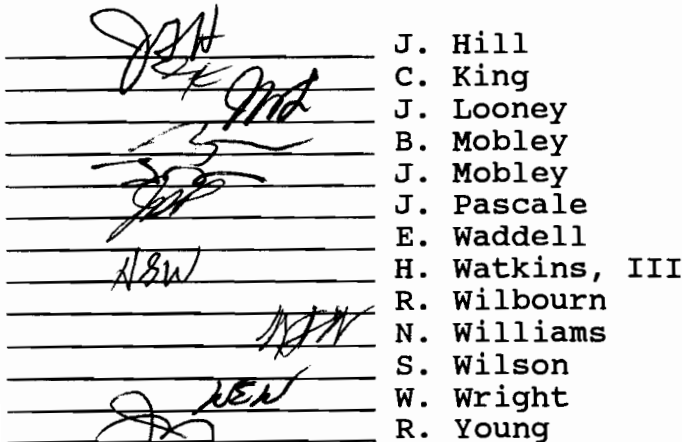 JFH J. Hill
CK C. King
JML J. Looney
B. Mobley
J. Mobley
J. Pascale
E. Waddell
HEW H. Watkins, III
R. Wilbourn
N. Williams
S. Wilson
WEW W. Wright
R. Young